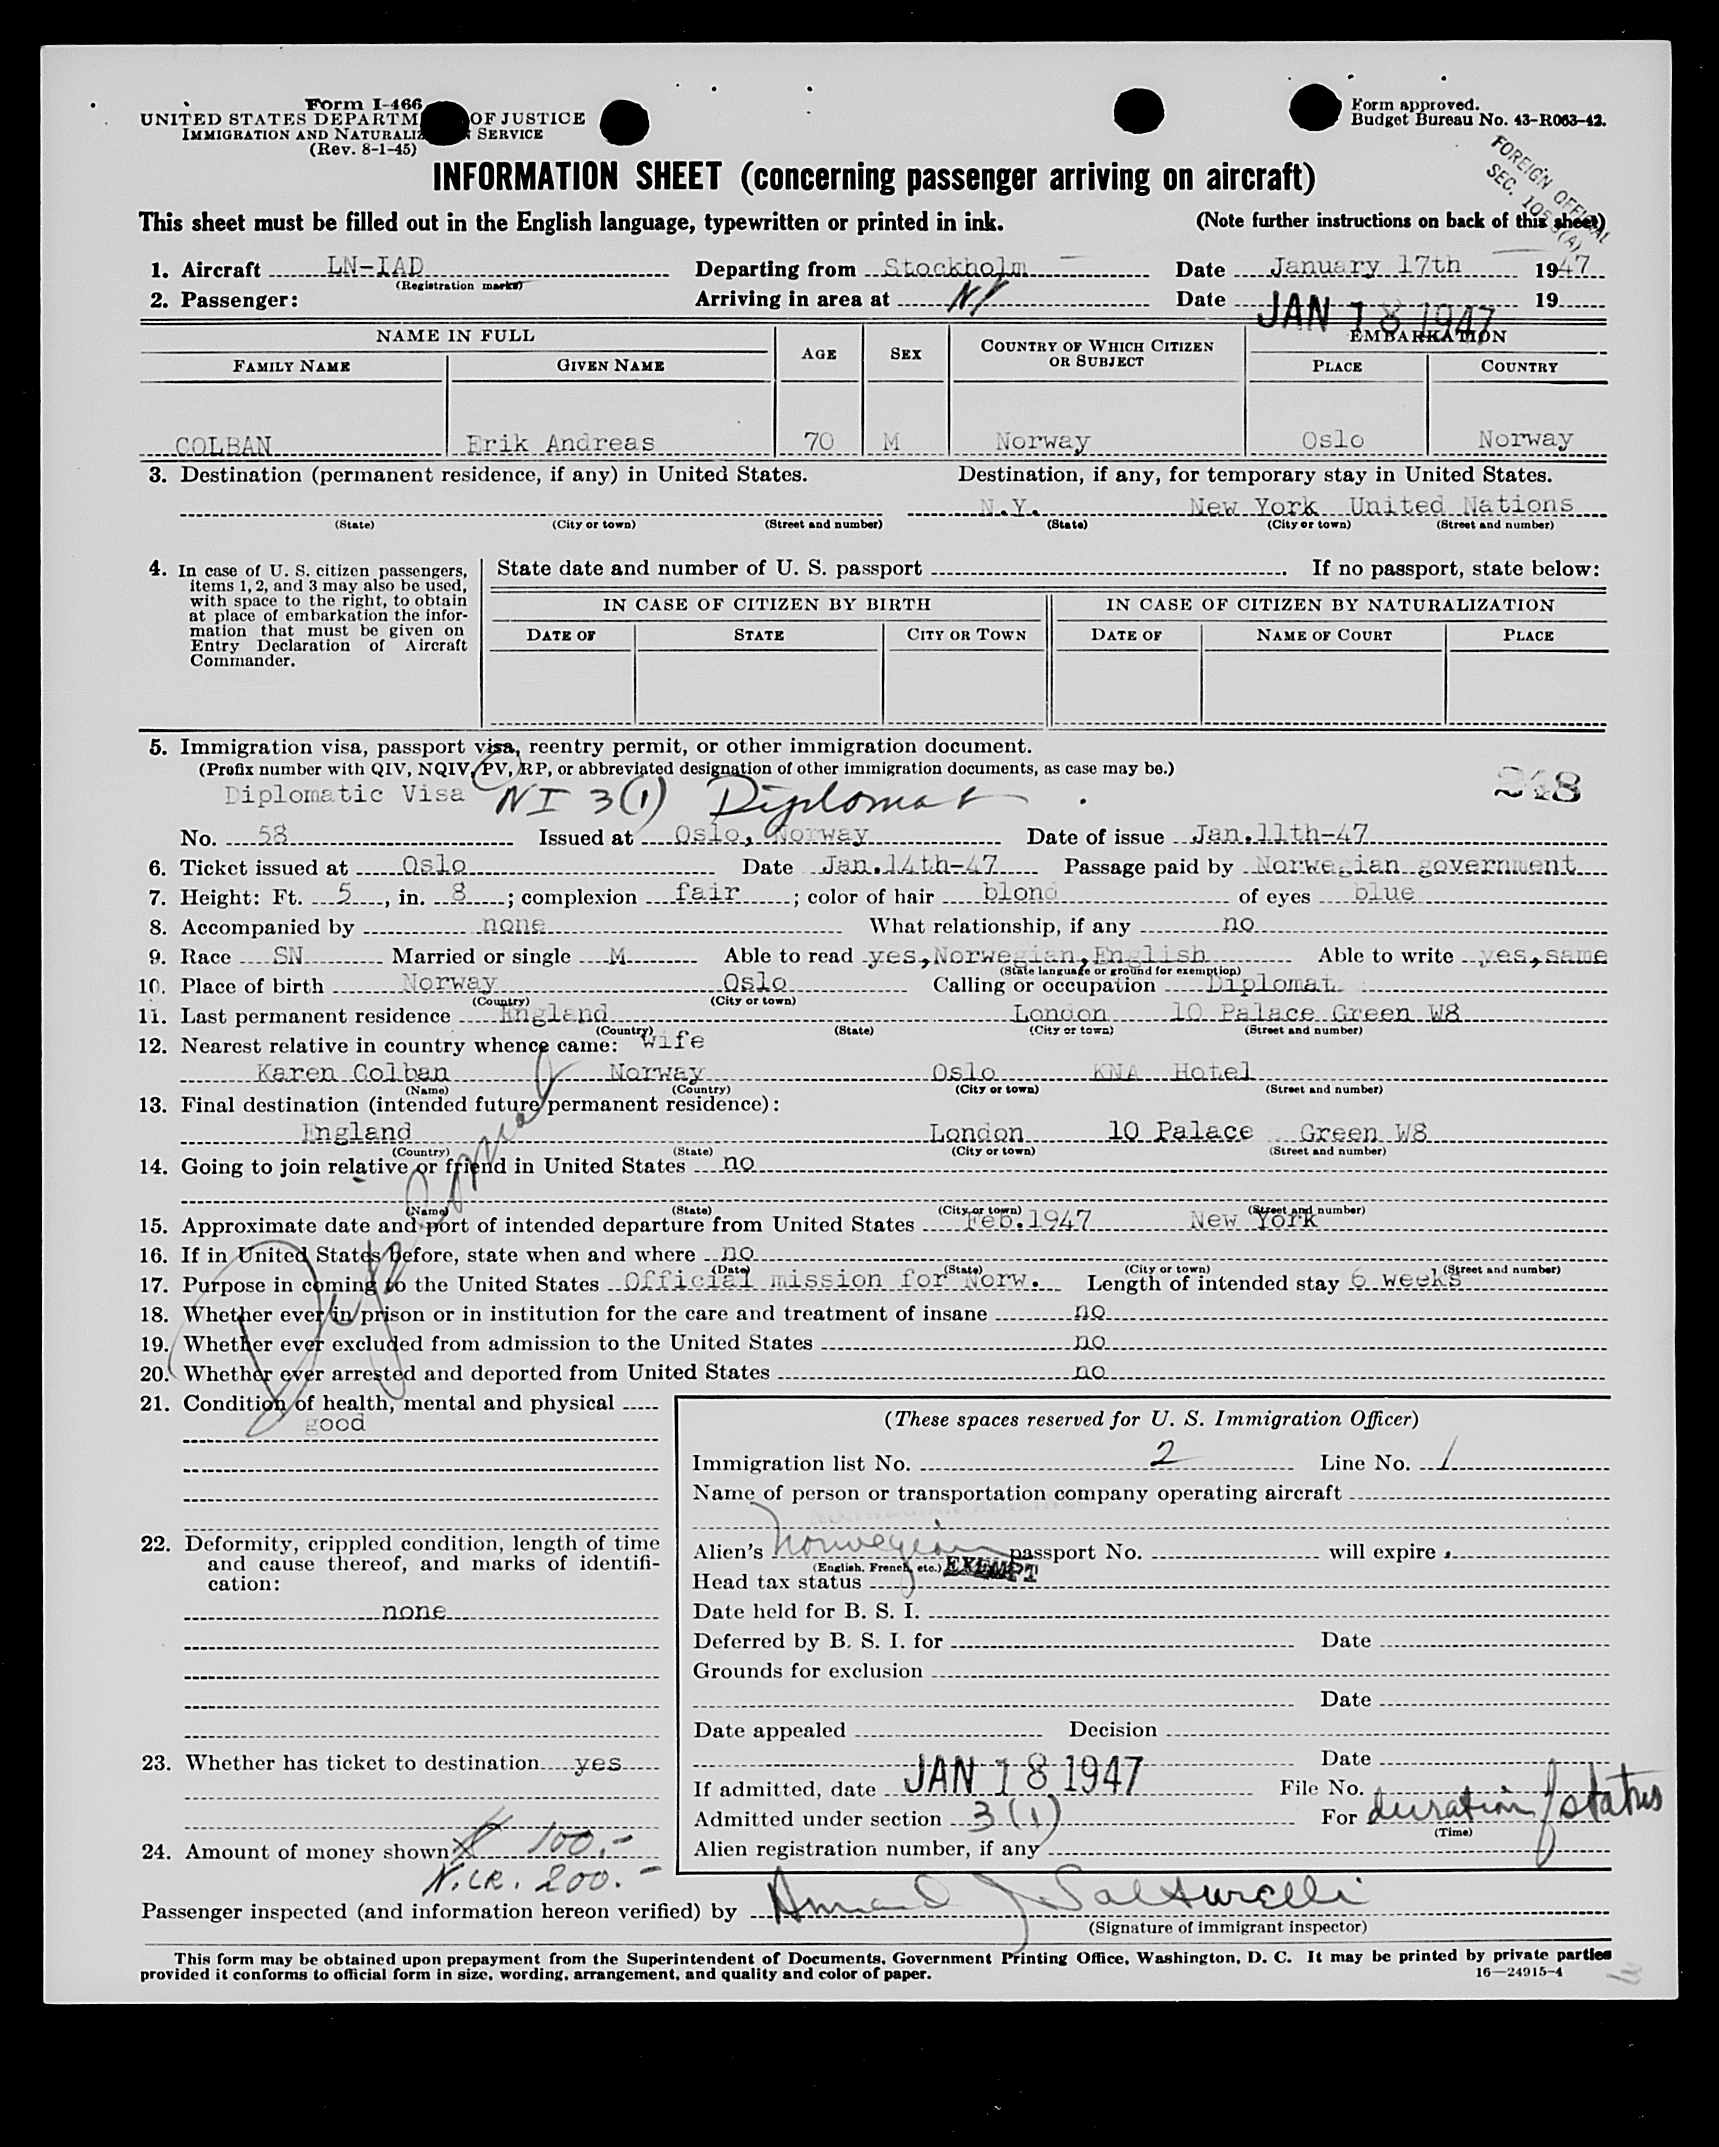 Form I-466
UNITED STATES DEPARTM OF JUSTICE
IMMIGRATION AND NATURALIZ SERVICE
(Rev. 8-1-45)
Form approved.
Budget Bureau No. 43-R063-42.
FOREIGN OFFICIAL
SEC.
INFORMATION SHEET (concerning passenger arriving on aircraft)
This sheet must be filled out in the English language, typewritten or printed in ink. (Note further instructions on back of this sheet)
1. Aircraft LN-IAD Departing from Stockholm Date January 17th 1947
(Registration marks)
2. Passenger: Arriving in area at NY Date JAN 18 1947 19
NAME IN FULL AGE SEX COUNTRY OF WHICH CITIZEN OR SUBJECT EMBARKATION
FAMILY NAME GIVEN NAME PLACE COUNTRY
COLBAN Erik Andreas 70 M Norway Oslo Norway
3. Destination (permanent residence, if any) in United States. Destination, if any, for temporary stay in United States.
N.Y. New York United Nations
(State) (City or town) (Street and number) (State) (City or town) (Street and number)
4. In case of U. S. citizen passengers,
items 1, 2, and 3 may also be used,
with space to the right, to obtain
at place of embarkation the infor-
mation that must be given on
Entry Declaration of Aircraft
Commander.
State date and number of U. S. passport . If no passport, state below:
IN CASE OF CITIZEN BY BIRTH IN CASE OF CITIZEN BY NATURALIZATION
DATE OF STATE CITY OR TOWN DATE OF NAME OF COURT PLACE
5. Immigration visa, passport visa, reentry permit, or other immigration document.
(Prefix number with QIV, NQIV, PV, RP, or abbreviated designation of other immigration documents, as case may be.)
Diplomatic Visa NI 3(1) Diplomat 248
No. 58 Issued at Oslo, Norway Date of issue Jan.11th-47
6. Ticket issued at Oslo Date Jan.14th-47 Passage paid by Norwegian government
7. Height: Ft. 5, in. 8; complexion fair; color of hair blond of eyes blue
8. Accompanied by none What relationship, if any no
9. Race SN Married or single M Able to read yes, Norwegian, English Able to write yes, same
(State language or ground for exemption)
10. Place of birth Norway Oslo Calling or occupation Diplomat
(Country) (City or town)
11. Last permanent residence England London 10 Palace Green W8
(Country) (State) (City or town) (Street and number)
12. Nearest relative in country whence came: Wife
Karen Colban Norway Oslo KNA Hotel
(Name) (Country) (City or town) (Street and number)
13. Final destination (intended future permanent residence):
England London 10 Palace Green W8
(Country) (State) (City or town) (Street and number)
14. Going to join relative or friend in United States no
(Name) (State) (City or town) (Street and number)
15. Approximate date and port of intended departure from United States Feb.1947 New York
16. If in United States before, state when and where no
(Date) (State) (City or town) (Street and number)
17. Purpose in coming to the United States Official mission for Norw. Length of intended stay 6 weeks
18. Whether ever in prison or in institution for the care and treatment of insane no
19. Whether ever excluded from admission to the United States no
20. Whether ever arrested and deported from United States no
Diplomat
21. Condition of health, mental and physical
good
22. Deformity, crippled condition, length of time
and cause thereof, and marks of identifi-
cation:
none
23. Whether has ticket to destination yes
24. Amount of money shown $ 100.-
N.CR. 200.-
(These spaces reserved for U. S. Immigration Officer)
Immigration list No. 2 Line No. 1
Name of person or transportation company operating aircraft
Alien's Norwegian passport No. will expire
(English, French, etc.)
Head tax status EXEMPT
Date held for B. S. I.
Deferred by B. S. I. for Date
Grounds for exclusion
Date
Date appealed Decision
Date
If admitted, date JAN 18 1947 File No.
Admitted under section 3(1) For duration of status
(Time)
Alien registration number, if any
Passenger inspected (and information hereon verified) by
(Signature of immigrant inspector)
This form may be obtained upon prepayment from the Superintendent of Documents, Government Printing Office, Washington, D. C. It may be printed by private parties
provided it conforms to official form in size, wording, arrangement, and quality and color of paper. 16—24915-4